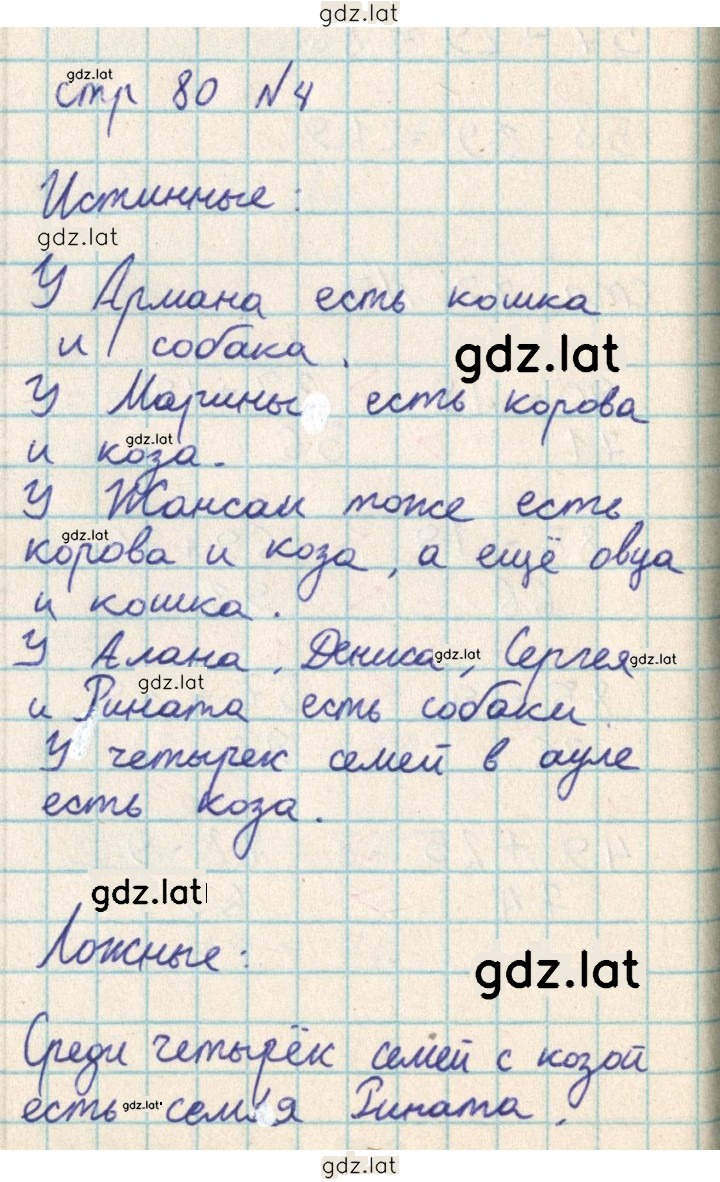 gdz.lat
gdz.lat
стр 80 №4
Истинные:
gdz.lat
У Армана есть кошка
и собака.
gdz.lat
У Марины есть корова
gdz.lat
и коза.
У Жансаи тоже есть
gdz.lat
корова и коза, а ещё овца
и кошка.
У Алана, Дениса, Сергея
gdz.lat gdz.lat
gdz.lat
и Рината есть собаки.
У четырек семей в ауле
есть коза.
gdz.lat
Ложные:
gdz.lat
Среди четырёк семей с козой
есть семья Рината.
gdz.lat
gdz.lat